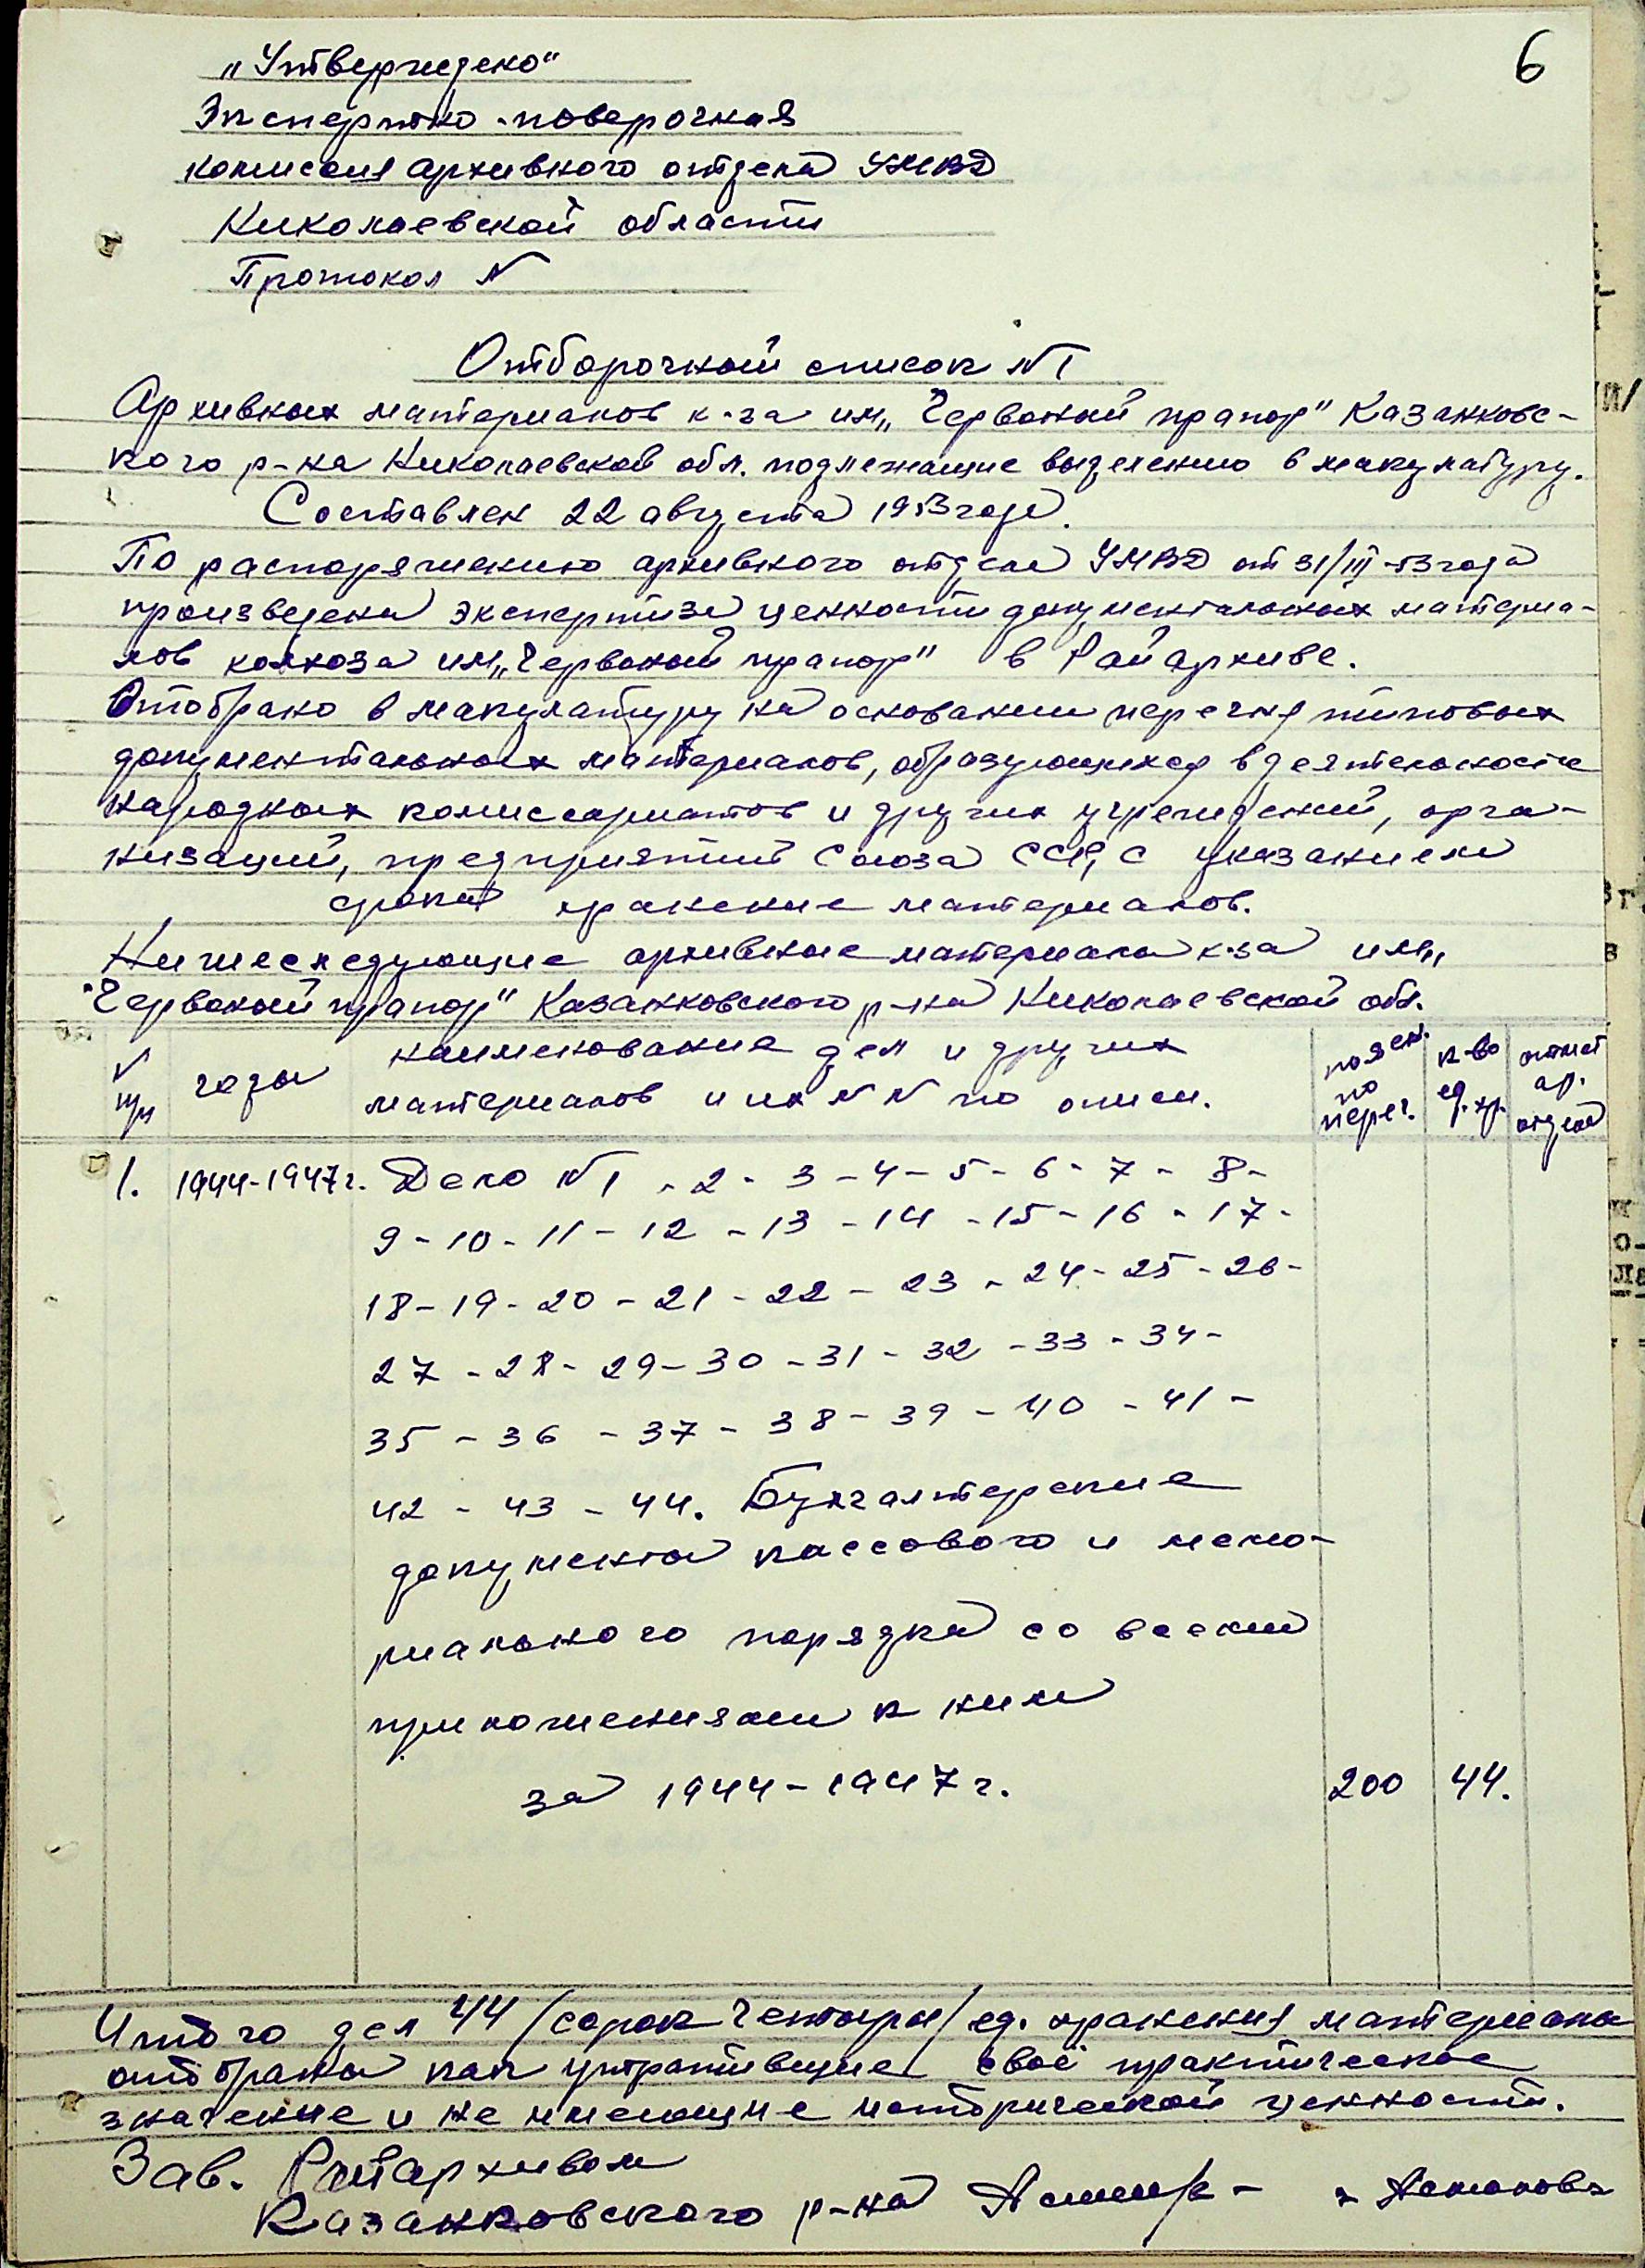 6
„Утверждено“
Экспертно-поверочная
комиссия архивного отдела УМВД
Николаевской области
Протокол №
Отборочный список №1
Архивных материалов к-за им „Червоный прапор" Казанковс-
кого р-на Николаевской обл. подлежащие выделению в макулатуру.
Составлен 22 августа 1953 года.
По распоряжению архивного отдела УМВД от 31/III-53 года
произведена экспертиза ценности документальных материа-
лов колхоза им „Червоный прапор" в Райархиве.
Отобрано в макулатуру на основании перечня типовых
документальных материалов, образующихся в деятельности
народных комиссариатов и других учреждений, орга-
низаций, предприятий Союза ССР, с указанием
срока хранение материалов.
Нижеследующие архивные материалы к-за им„
"Червоный прапор" Казанковского р-на Николаевской обл.
№ п/п годы наименование дел и других
материалов и их №№ по описи.
по перег. к-во ед. хр. отмет ар. отдела
1. 1944-1947г. Дело №1 - 2 - 3 - 4 - 5 - 6 - 7 - 8 -
9 - 10 - 11 - 12 - 13 - 14 - 15 - 16 - 17 -
18 - 19 - 20 - 21 - 22 - 23 - 24 - 25 - 26 -
27 - 28 - 29 - 30 - 31 - 32 - 33 - 34 -
35 - 36 - 37 - 38 - 39 - 40 - 41 -
42 - 43 - 44. Бухгалтерские
документы кассового и мемо-
риального порядка со всеми
приложениями к ним
за 1944-1947 г. 200 44.
Итого дел 44 /сорок четыри/ ед. хранения материалы
отобраны как утратившие своё практическое
значение и не имеющие исторической ценности.
Зав. Райархивом
Казанковского р-на